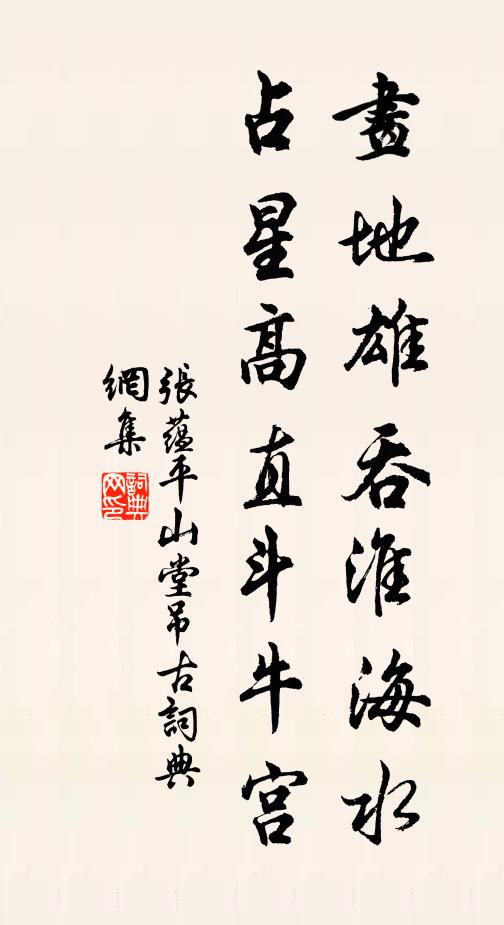 畫地雄吞淮海水
占星高直斗牛宫
張蘊平山堂吊古詞典
網集
詞典
网印